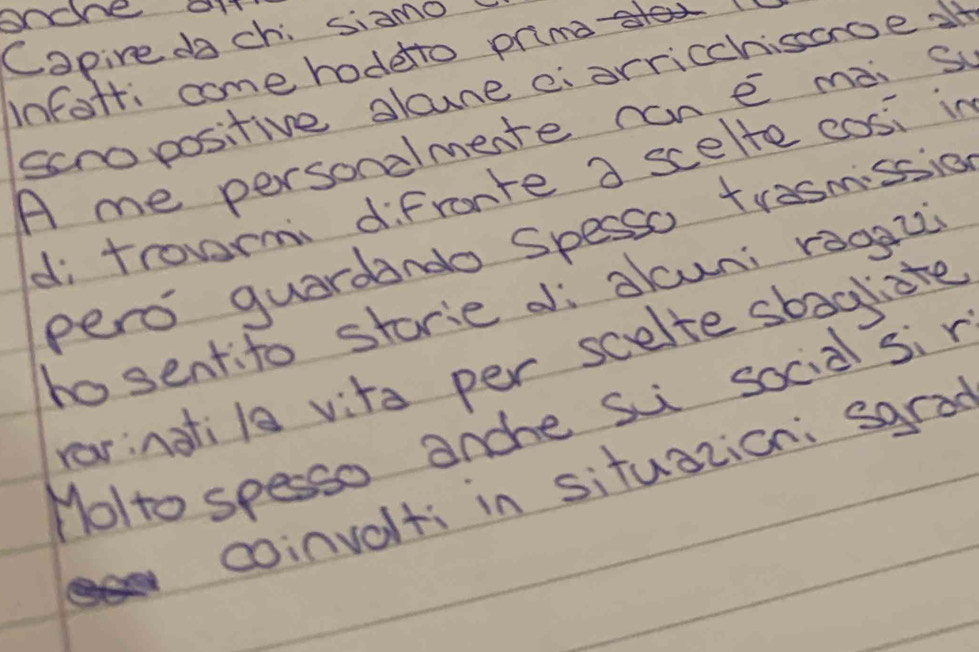 anche
Capire da chi siamo
Infatti come ho detto prima
sono positive alcune ci arricchiscono e alt
A me personalmente non é mai su
di trovarmi difronte a scelte così in
però guardando spesso trasmission
ho sentito storie di alcuni ragazzi
rovinati la vita per scelte sbagliate
Molto spesso anche sui social si r
coinvolti in situazioni sgrad